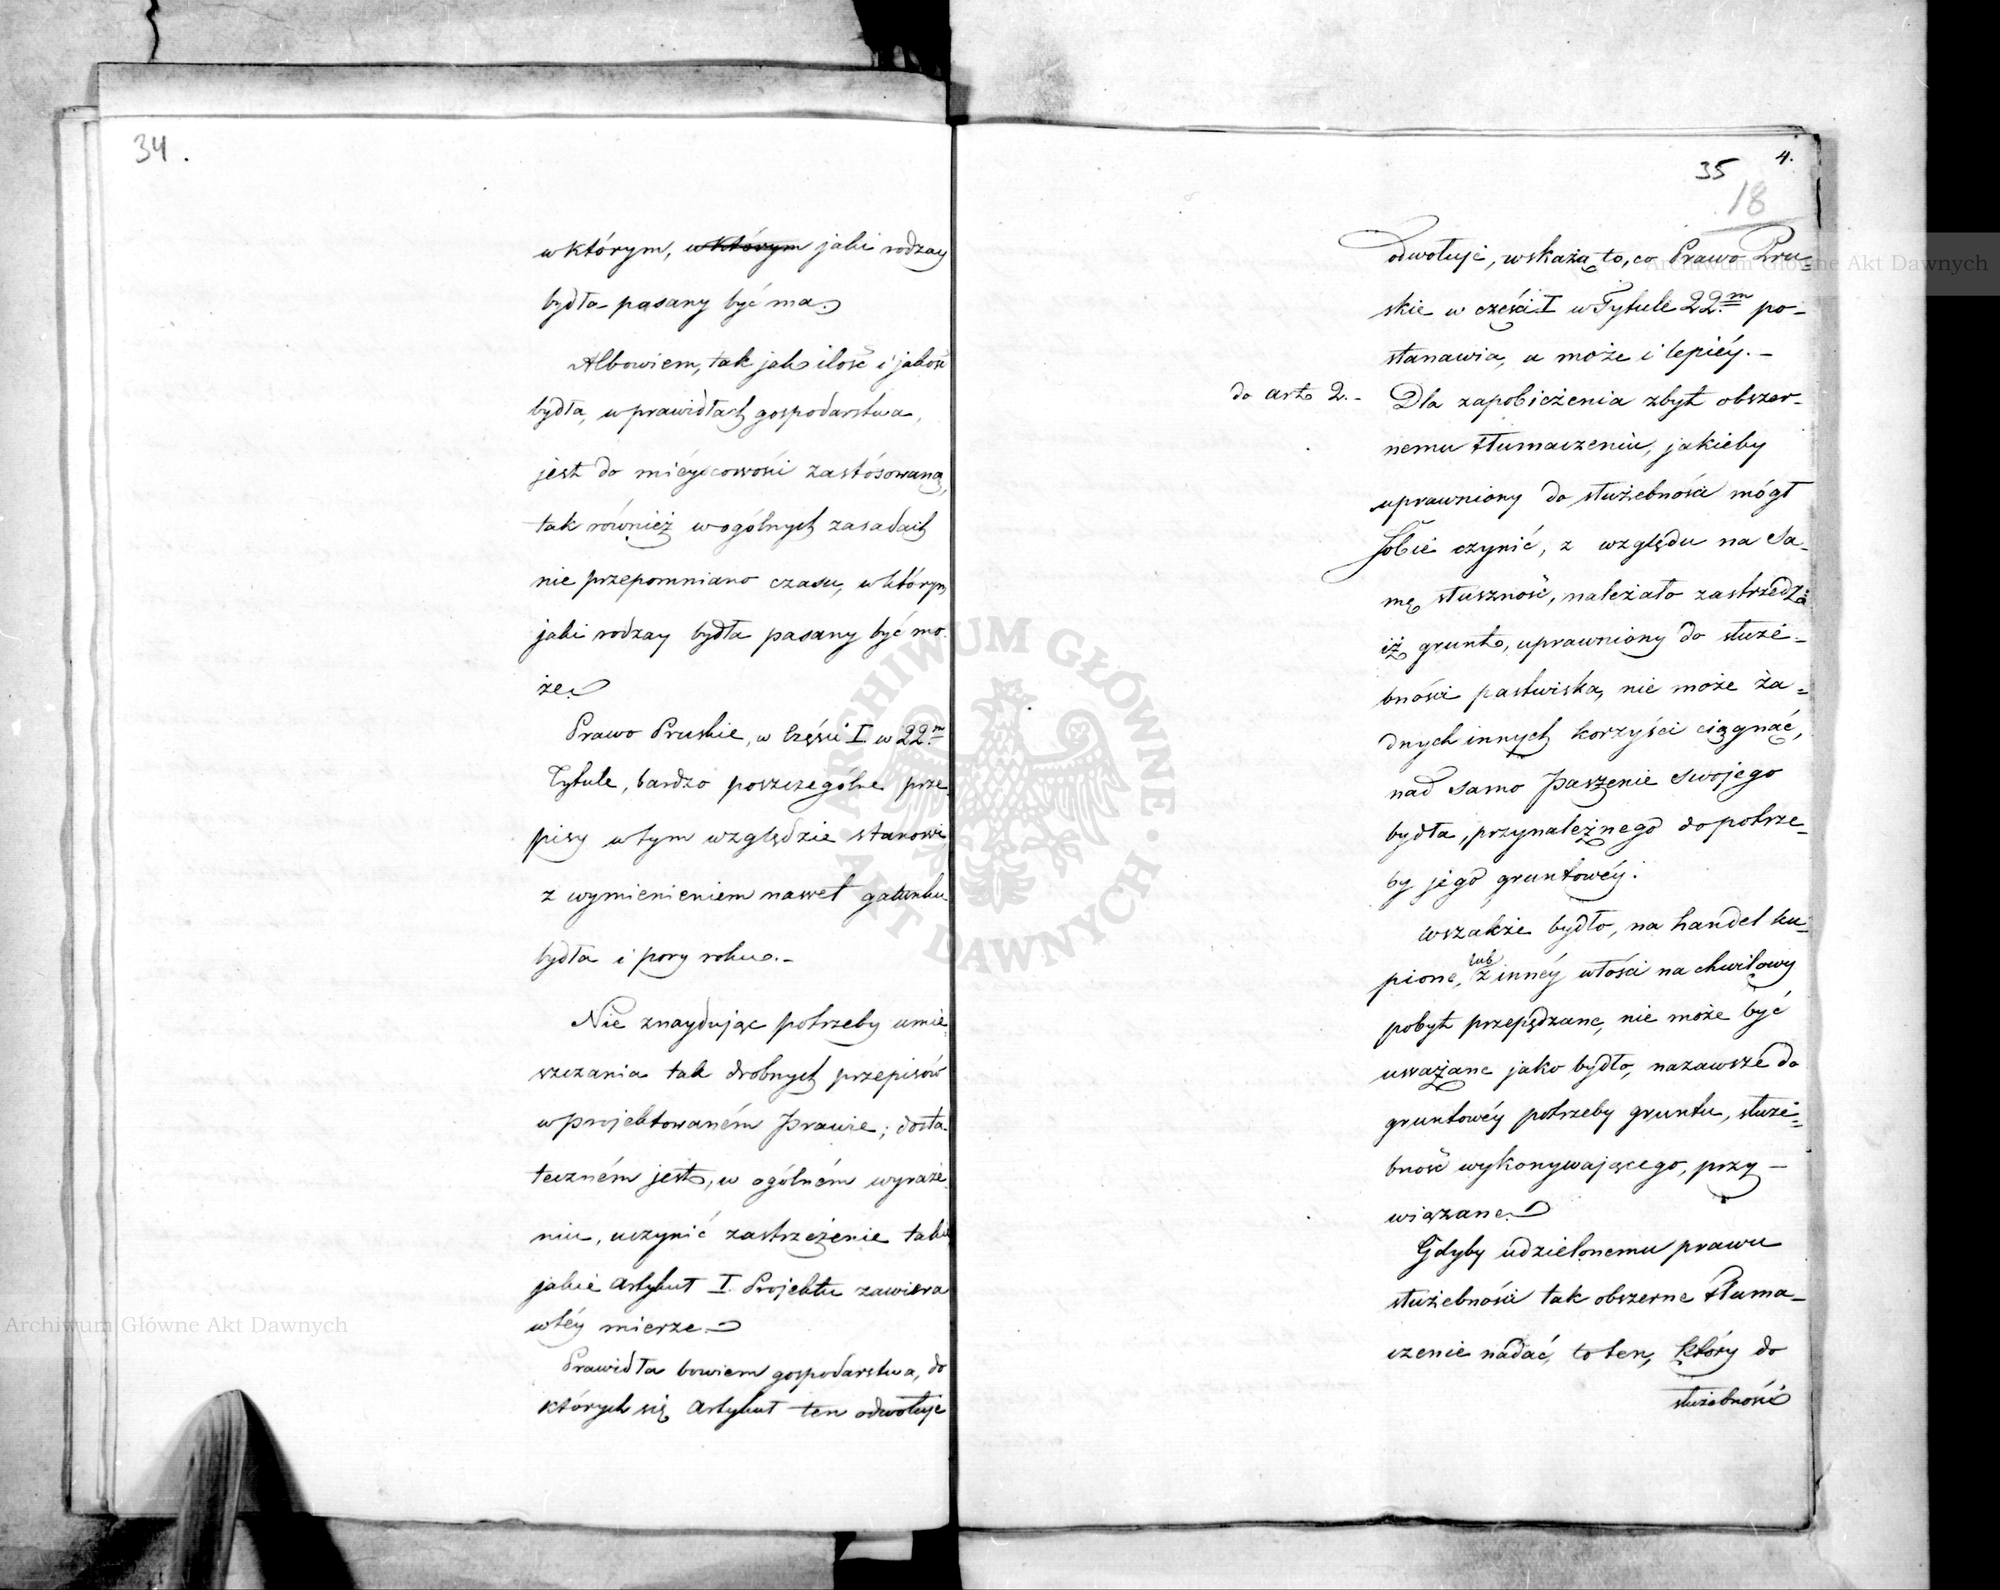 34.
w którym, w którym jaki rodzay
bydła pasany być ma.
Albowiem, tak jak ilość i jakość
bydła, w prawidłach gospodarstwa,
jest do mieyscowości zastósowaną,
tak również w ogólnych zasadach
nie przepomniano czasu, w którym
jaki rodzay bydła pasany być mo-
że.
Prawo Pruskie, w Części I. w 22.m
Tytule, bardzo poszczególne prze-
pisy w tym względzie stanowi
z wymienieniem nawet gatunku
bydła i pory roku.-
Nie znaydując potrzeby umie-
szczania tak drobnych przepisów
w projektowaném prawie; dosta-
teczném jest, w ogólném wyraże-
niu, uczynić zastrzeżenie takie
jakie Artykuł I. Projektu zawiera
w téy mierze.
Prawidła bowiem gospodarstwa, do
których się Artykuł ten odwołuje
4.
35
18
odwołuje, wskażą to, co Prawo Pru-
skie w części I w Tytule 22.m po-
stanawia, a może i lepiéy.-
do art. 2.- Dla zapobieżenia zbyt obszer-
nemu tłumaczeniu, jakieby
uprawniony do służebności mógł
sobie czynić, z względu na sa-
mę słuszność, należało zastrzedz
iż grunt, uprawniony do służe-
bności pastwiska, nie może ża-
dnych innych korzyści ciągnąć,
nad samo paszenie swojego
bydła, przynależnego do potrze-
by jego gruntowéy.
wszakże bydło, na handel ku-
pione, lub z innéy włości na chwilowy
pobyt przepędzane, nie może być
uważane jako bydło, nazawsze do
gruntowéy potrzeby gruntu, służe-
bność wykonywającego, przy-
wiązane.
Gdyby udzielonemu prawu
służebności tak obszerne tłuma-
czenie nadać, to ten, który do
służebność
Archiwum Główne Akt Dawnych
Archiwum Główne Akt Dawnych
ARCHIWUM GŁÓWNE AKT DAWNYCH